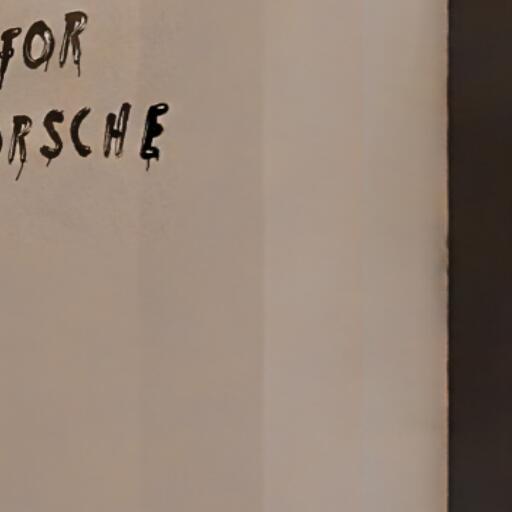 FOR
ORSCHE